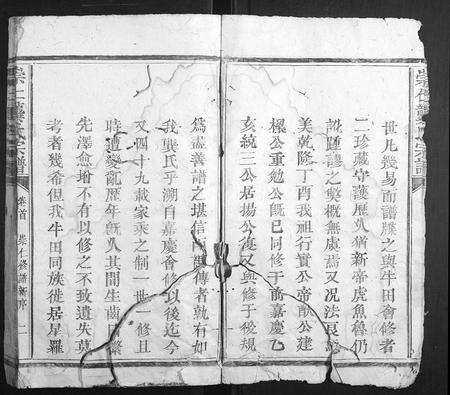 世凡幾易而譜牒之與牛田會修者
二珍藏守護歷久猶新帝虎魯魚仍
訛踵謬之獘概無慮焉又况法良
美乾隆丁酉我祖行實公帝猷公建
樑公重勉公既已同修于前嘉慶乙
亥統三公居揚公復又與修于後規
為盡善譜之堪信而傳者孰有如
我龔氏乎溯自嘉慶會修以後迄今
又四十九載家乘之制一世一修且
時遭變亂歷年旣久其間生齒日繁
先澤愈增不有以修之不致遺失莫
考者幾希但我牛田同族徙居星羅
崇仁龔氏宗譜
卷首
崇仁修譜新序
二
崇仁龔氏宗譜